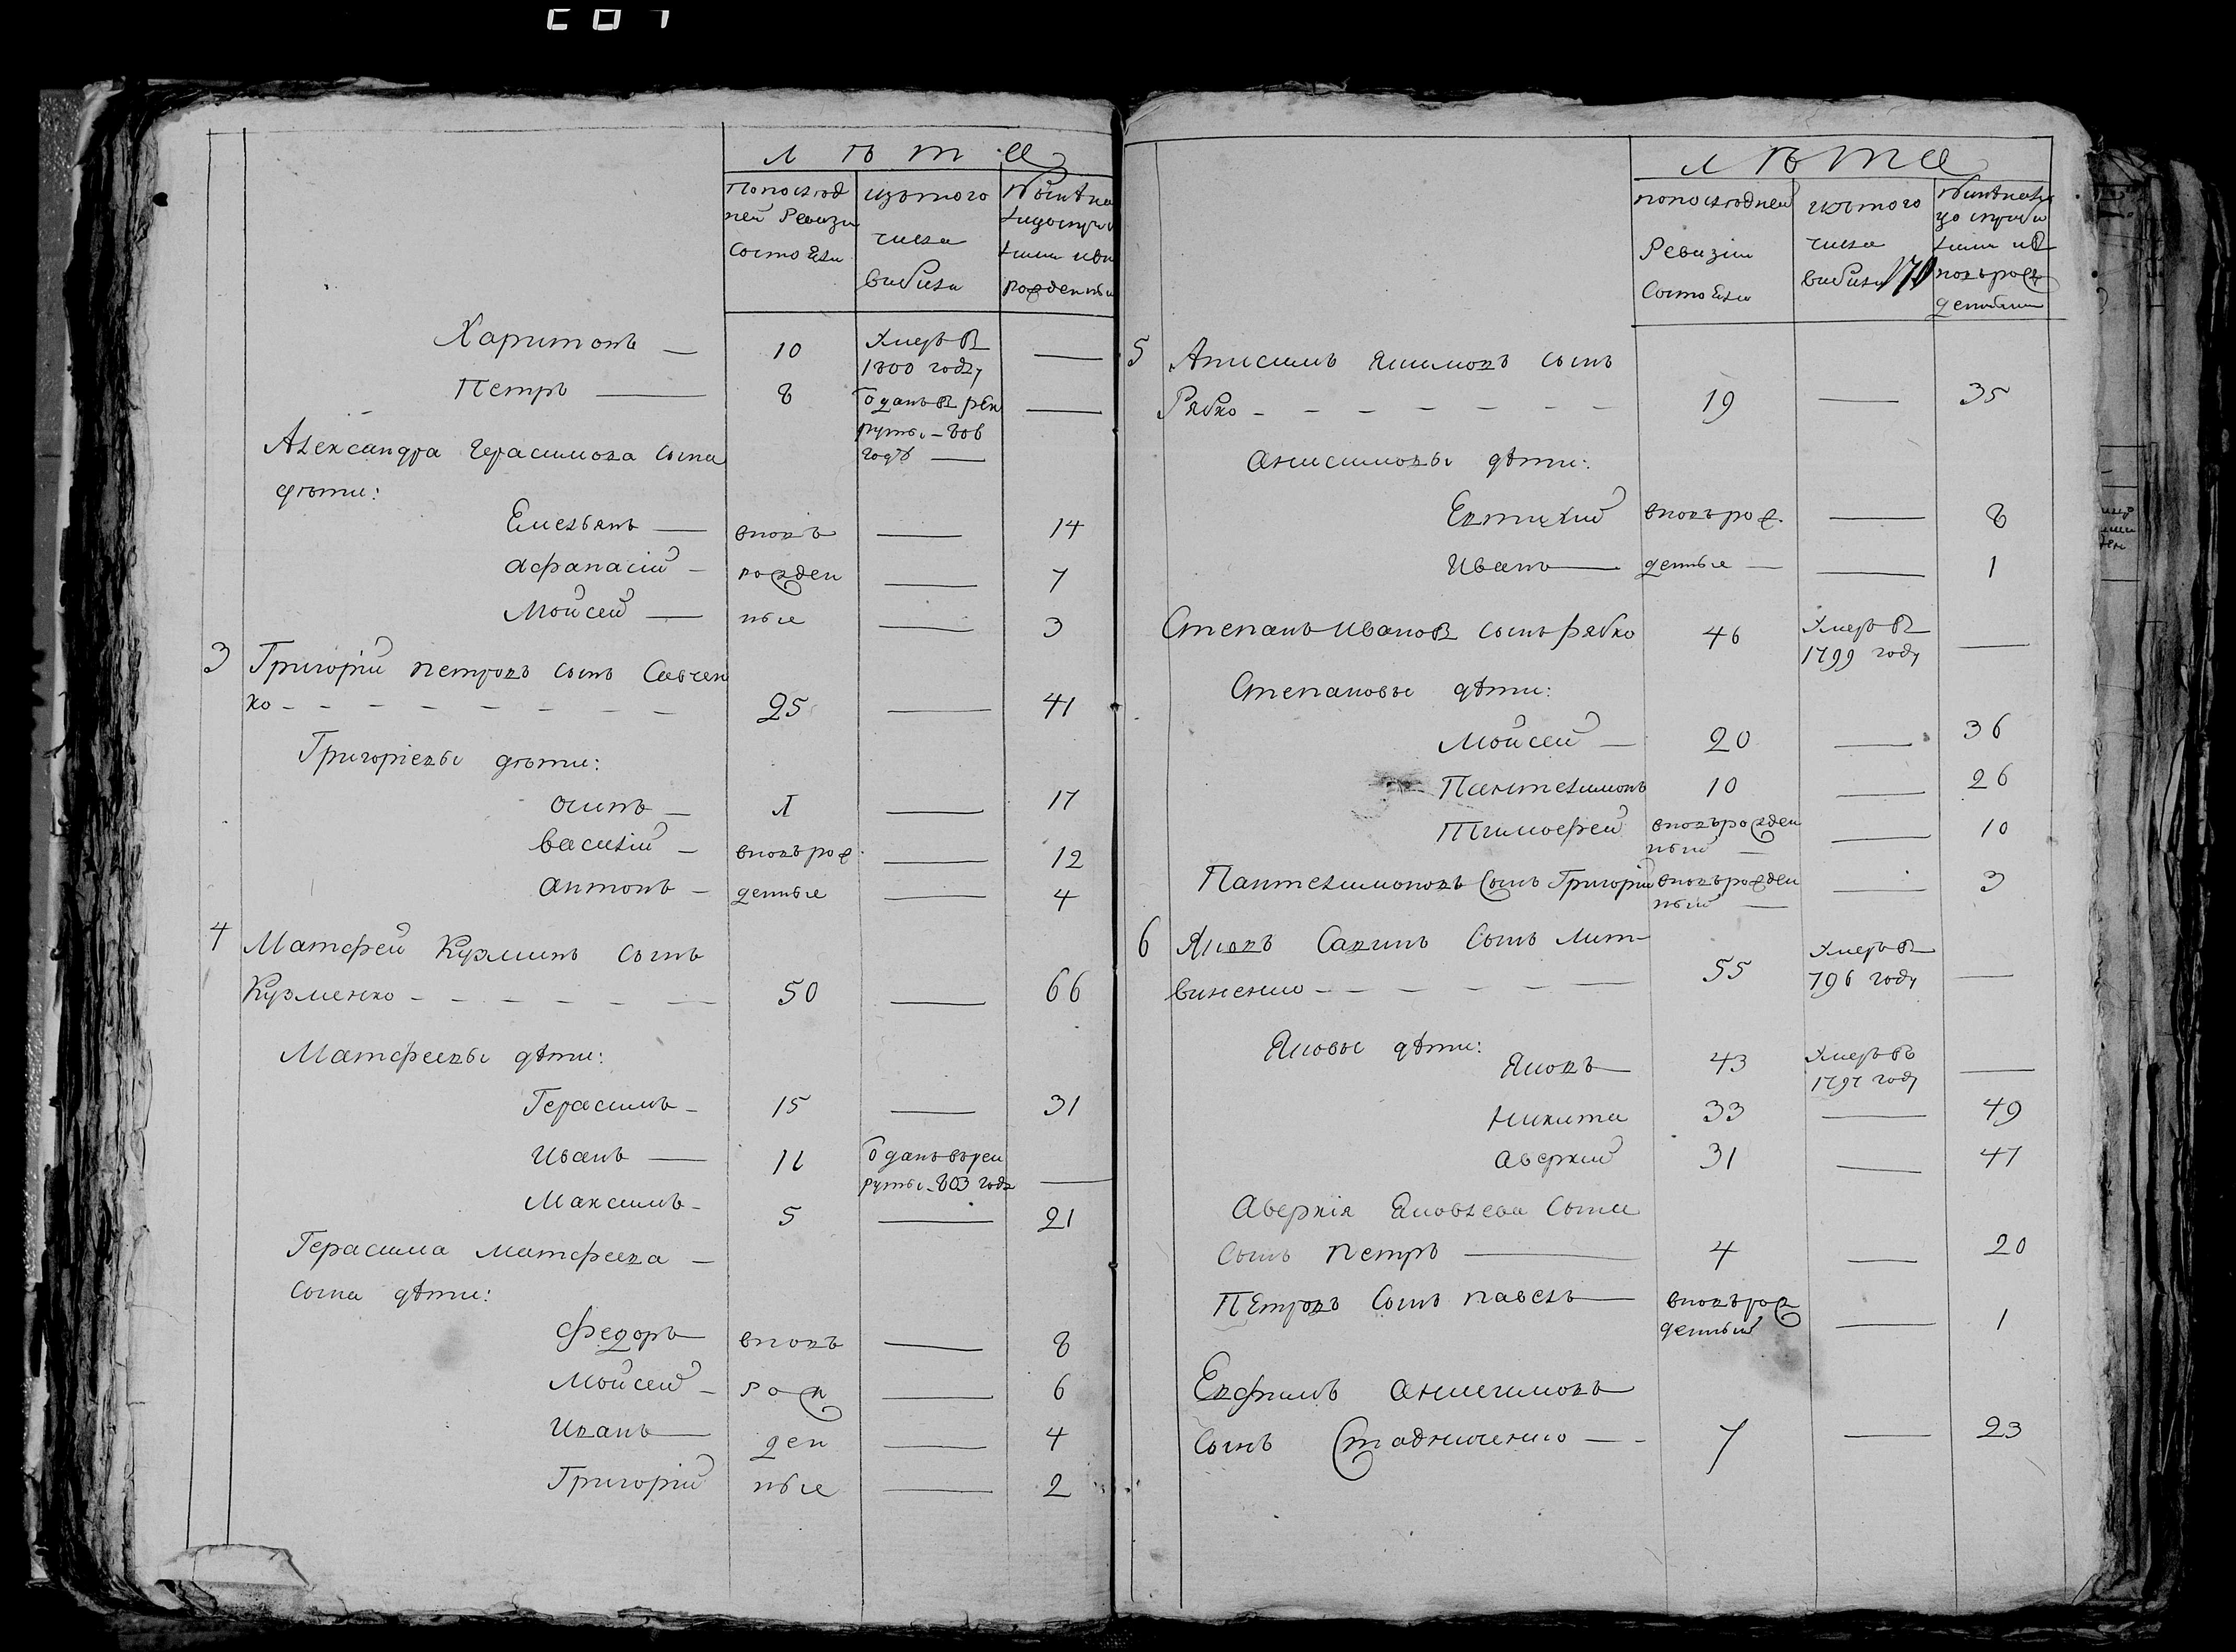 лѣта
Попослѣд
ней Ревизи
Состояли
изътого
числа
выбили
Харитонъ — 10 Умеръ въ —
1800 году
Петръ — 8 Отданъ в рек —
руты - 806
годѣ —
Александра Герасимова сына
дѣти:
Емельянъ — вновъ — 14
Афанасий - рожден — 7
Мойсей — ные — 3
3 Григорій петровъ сынъ Савчен
ко - - - - - - - - 25 — 41
Григоріевы дѣти:
Осипъ - 1 — 17
Василій - вновърож — 12
антонъ - денные — 4
4 Матфей Кузминъ сынъ
Кузменко - - - - - - - 50 — 66
Матфеевы дѣти:
Герасимъ - 15 — 31
Иванъ — 11 Отданъ въ рек —
руты - 803 годѣ
Максимъ - 5 — 21
Герасима Матфеева -
сына дѣти:
Федоръ вновъ — 8
Мойсей - рож — 6
Иванъ — ден — 4
Григорій ные — 2
лѣта
попослѣдней
Ревизіи
Состояли
изътого
числа
выбили
5 Анисимъ Якимовъ сынъ
Рябко - - - - - - - 19 — 35
Анисимовы дѣти:
Евтихий вновърож — 8
Иванъ — денные — — 1
Степанъ Ивановъ сынъ рябко 46 Умеръ въ —
1799 году
Степановы дѣти:
Мойсей — 20 — 36
Пантелимонъ 10 — 26
Тимофей вновърожден — 10
ный —
Пантелимоновъ Сынъ Григорий вновърожден — 3
ный —
6 Яковъ Савинъ Сынъ Лит-
виненко - - - - - — 55 Умеръ въ —
796 году
Яковы дѣти:
Яковъ — 43 Умеръ въ —
1797 году
Никита 33 — 49
Аверкий 31 — 47
Аверкія Яковлева Сына
Сынъ Петръ — 4 — 20
Петровъ Сынъ павелъ — вновърож — 1
денный
Евфимъ Анисимовъ
Сынъ Стадниченко — - 7 — 23